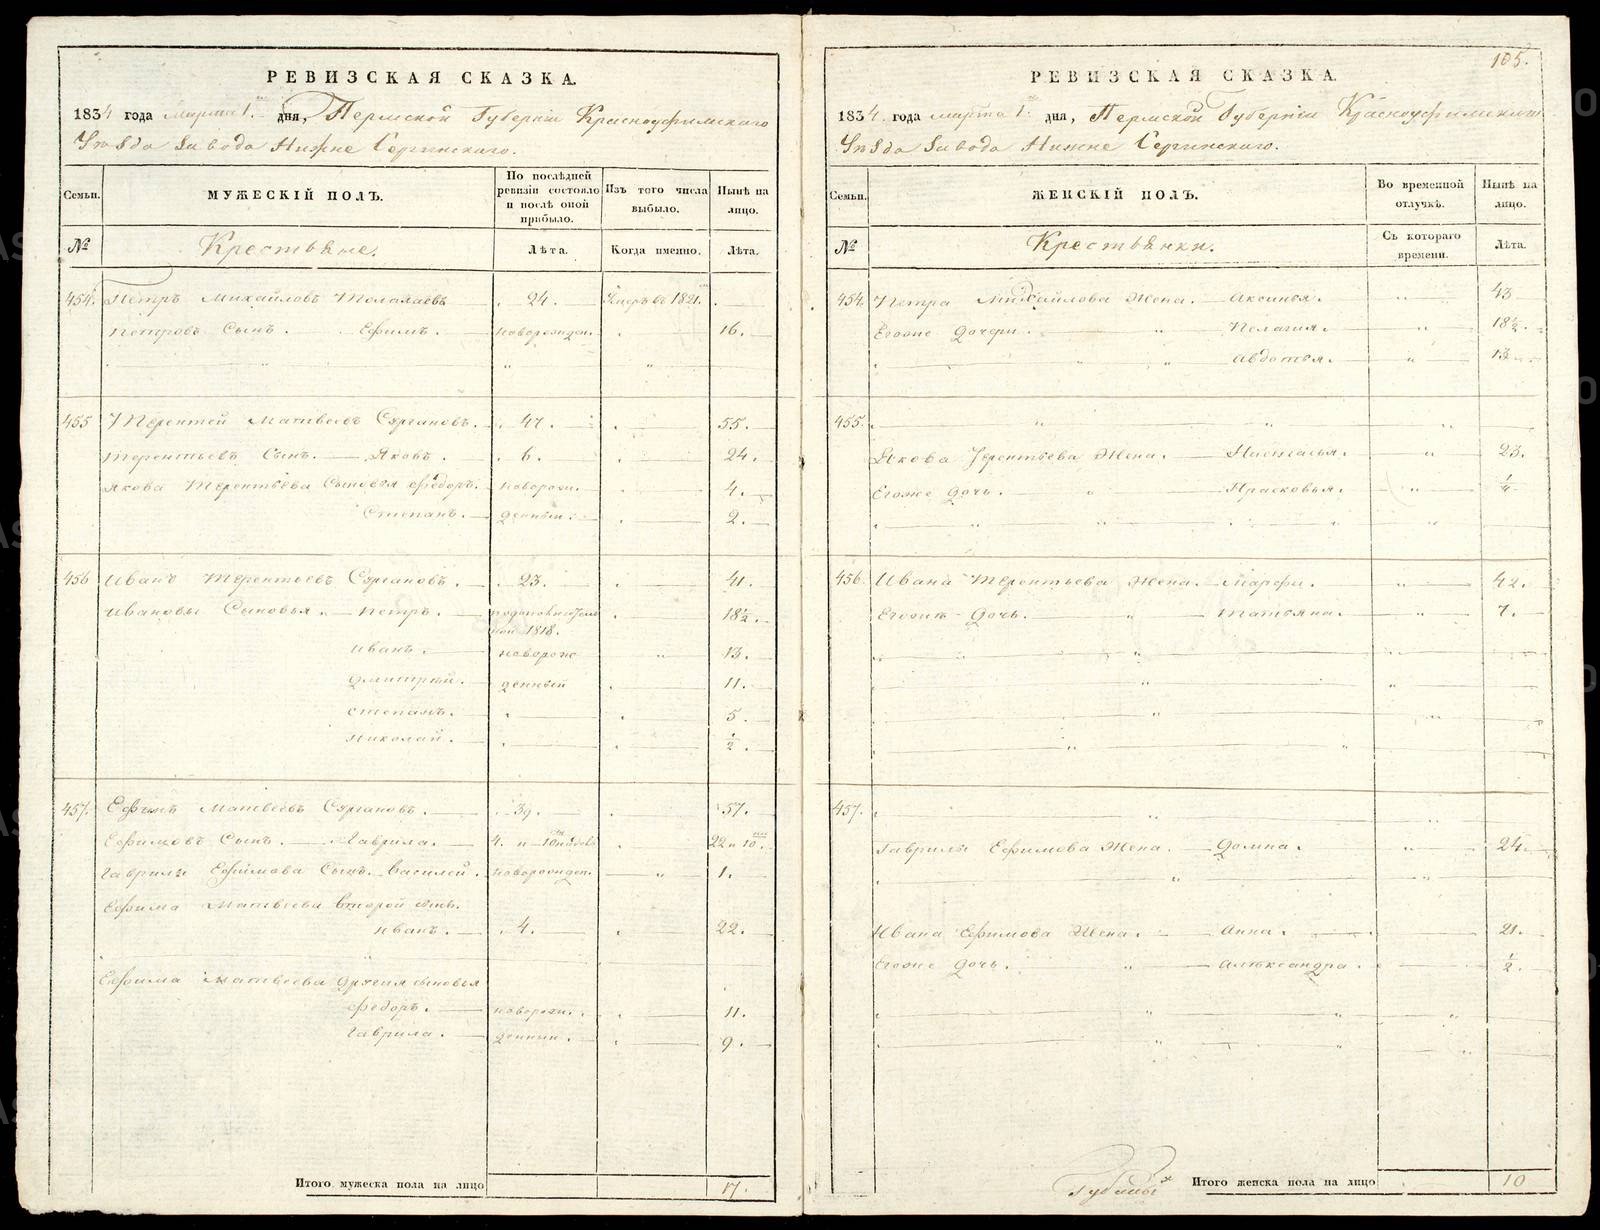 РЕВИЗСКАЯ СКАЗКА.
1834 года марта 1. дня, Пермской Губернiи Красноуфимскаго
Уѣзда Завода Нижне Сергинскаго.
Семьи.
МУЖЕСКIЙ ПОЛЪ.
По послѣдней ревизiи состояло и послѣ оной прибыло.
Изъ того числа выбыло.
Нынѣ на лицо.
№
Крестьяне.
Лѣта.
Когда именно.
Лѣта.
454. Петръ Михайловъ 24. Умеръ въ 1821.
Петровъ Сынъ. Ефимъ. новорожден. 16.
455 Терентей Матвеевъ 47. 55.
Терентьевъ Сынъ. Яковъ. 6. 24.
Якова Терентьева Сыновья Федоръ. новорож. 4.
Степанъ. денныи. 2.
456 Иванъ Терентьевъ 23. 41.
Ивановы Сыновья. Петръ. 18½.
1818.
Иванъ. новорож 13.
Дмитрий. денный 11.
Степанъ. 5.
Николай. ½.
457. Ефимъ Матвеевъ 39. 57.
Ефимовъ Сынъ. Гаврила. 4. и 10 22 и 10.
Гаврилы Ефимова Сынъ. Василей. новорожден. 1.
Ефима Матвеева Второй сынъ.
Иванъ. 4. 22.
Ефима Матвеева Другия сыновья
Федоръ. новорож. 11.
Гаврила. денныи. 9.
Итого мужеска пола на лицо 17.
105.
РЕВИЗСКАЯ СКАЗКА.
1834. года марта 1. дня, Пермской Губернiи Красноуфимскаго
Уѣзда Завода Нижне Сергинскаго.
Семьи.
ЖЕНСКIЙ ПОЛЪ.
Во временной отлучкѣ.
Нынѣ на лицо.
№
Крестьянки.
Съ котораго времени.
Лѣта.
454. Петра Михайлова Жена. Аксинья. 43
Егоже Дочери. Пелагия. 18½.
Авдотья. 13
455.
Якова Терентьева Жена. Настасья. 23.
Егоже Дочь. Прасковья. ¼
456. Ивана Терентьева Жена. Марфа. 42.
Егоже Дочь. Татьяна. 7.
457.
Гаврилы Ефимова Жена. Домна. 24.
Ивана Ефимова Жена. Анна. 21.
Егоже Дочь. Александра. ½.
Итого женска пола на лицо 10